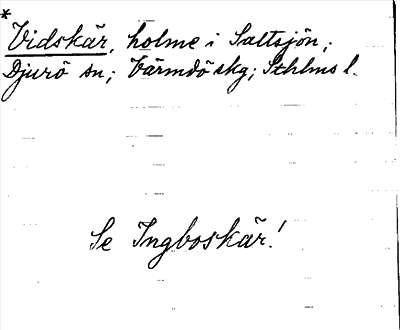 *
Vidskär, holme i Saltsjön,
Djurö sn; Värmdö skg; Sthlms l.
Se Ingboskär!